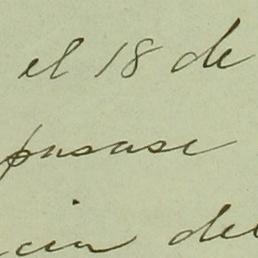 el 18 de
pusose
cia del